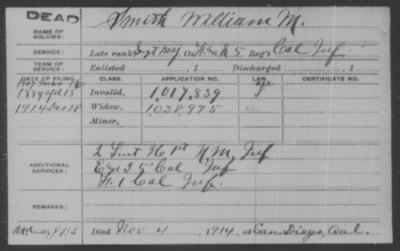 DEAD
NAME OF SOLDIER:
Smith William M.
SERVICE:
Late rank Sergt Maj 5 Reg't Cal Inf.
TERM OF SERVICE:
Enlisted , 1 Discharged , 1
DATE OF FILING. CLASS. APPLICATION NO. LAW. CERTIFICATE NO.
Invalid, 1,017,839
1914 Dec 18 Widow, 1,038,975
Minor,
ADDITIONAL SERVICES:
2 Lieut 1st N.M. Inf
5" Cal Inf
1 Cal Inf.
REMARKS:
Died Nov 4, 1914, at San Diego, Cal.